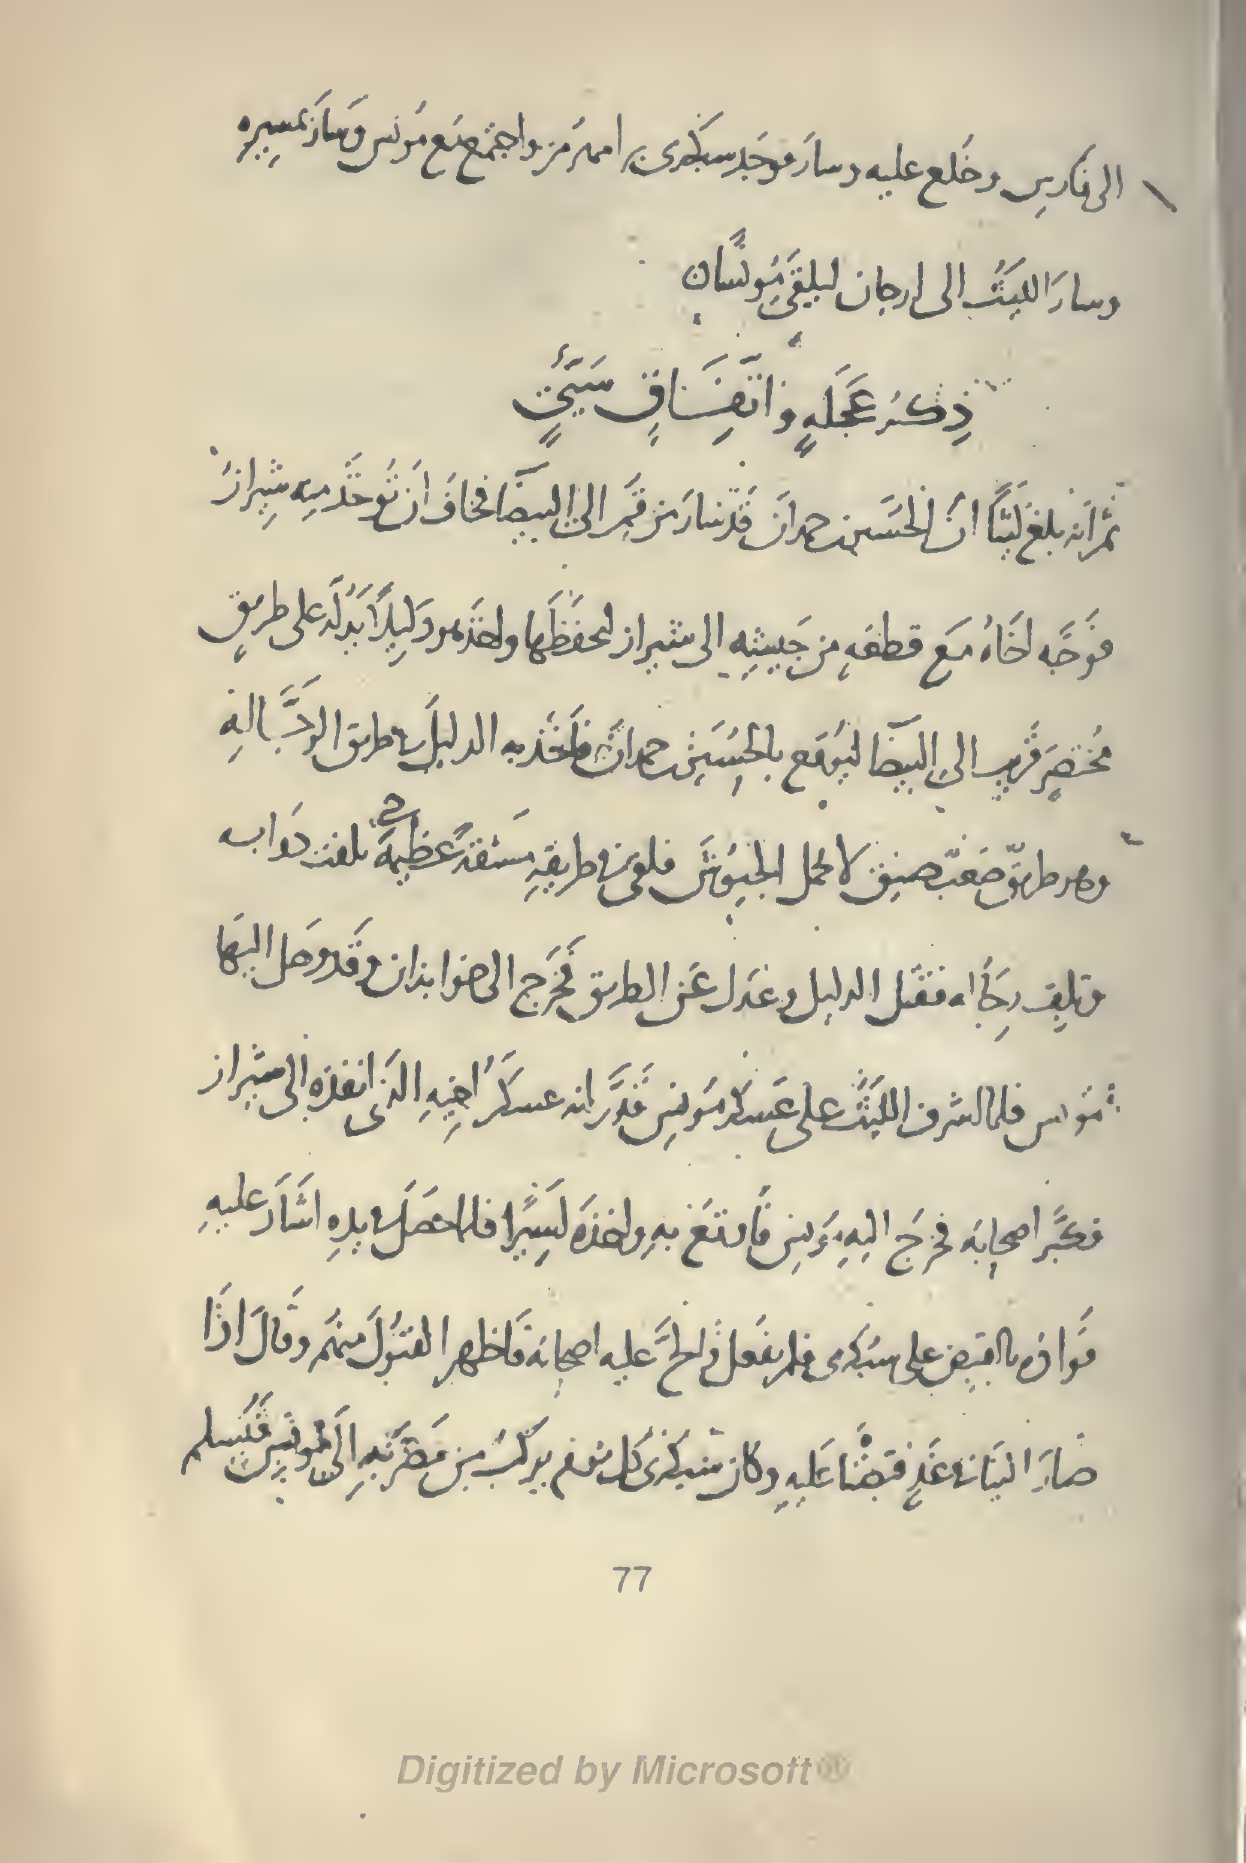 الى فارس وخلع عليه وسار فوجد سبكرى برامهرمز واجتمع مع مونس وسار بمسيره
وسار الليث الى ارجان ليلقى مونسًا
ذكر عجلةٍ واتفاقٍ سيّئٍ
ثم انه بلغ ليثًا ان الحسين بن حمدان قد سار من قم الى البيضا فخاف ان توخذ منه شيراز
فوجّه اخاه مع قطعةٍ من جيشه الى شيراز ليحفظها واخذ هو دليلًا يدلّه على طريقٍ
مختصرٍ قريب الى البيضا ليوقع بالحسين بن حمدان فاخذ به الدليل فى طريق الرجّالة
وهو طريقٌ صعبٌ ضيق لا يحمل الجيوش فلقى فى طريقه مشقةً عظيمةً حتى تلفت دوابه
وتلف رجاله فقتل الدليل وعدل عن الطريق فخرج الى خوابذان وقد وصل اليها
مونس فلما اشرف الليث على عسكر مونس قدّر انه عسكر اخيه الذى انفذه الى شيراز
فكبّر اصحابه فخرج اليه مونس فاوقع به واخذه اسيرًا فلما حصل فى يده اشار عليه
قواده بالقبض على سبكرى فلم يفعل فالحّ عليه اصحابه فاظهر القبول منهم وقال اذا
صار الينا فى غدٍ قبضنا عليه وكان سبكرى كل يوم يركب من مضربه الى مونس فيسلم
77
Digitized by Microsoft®